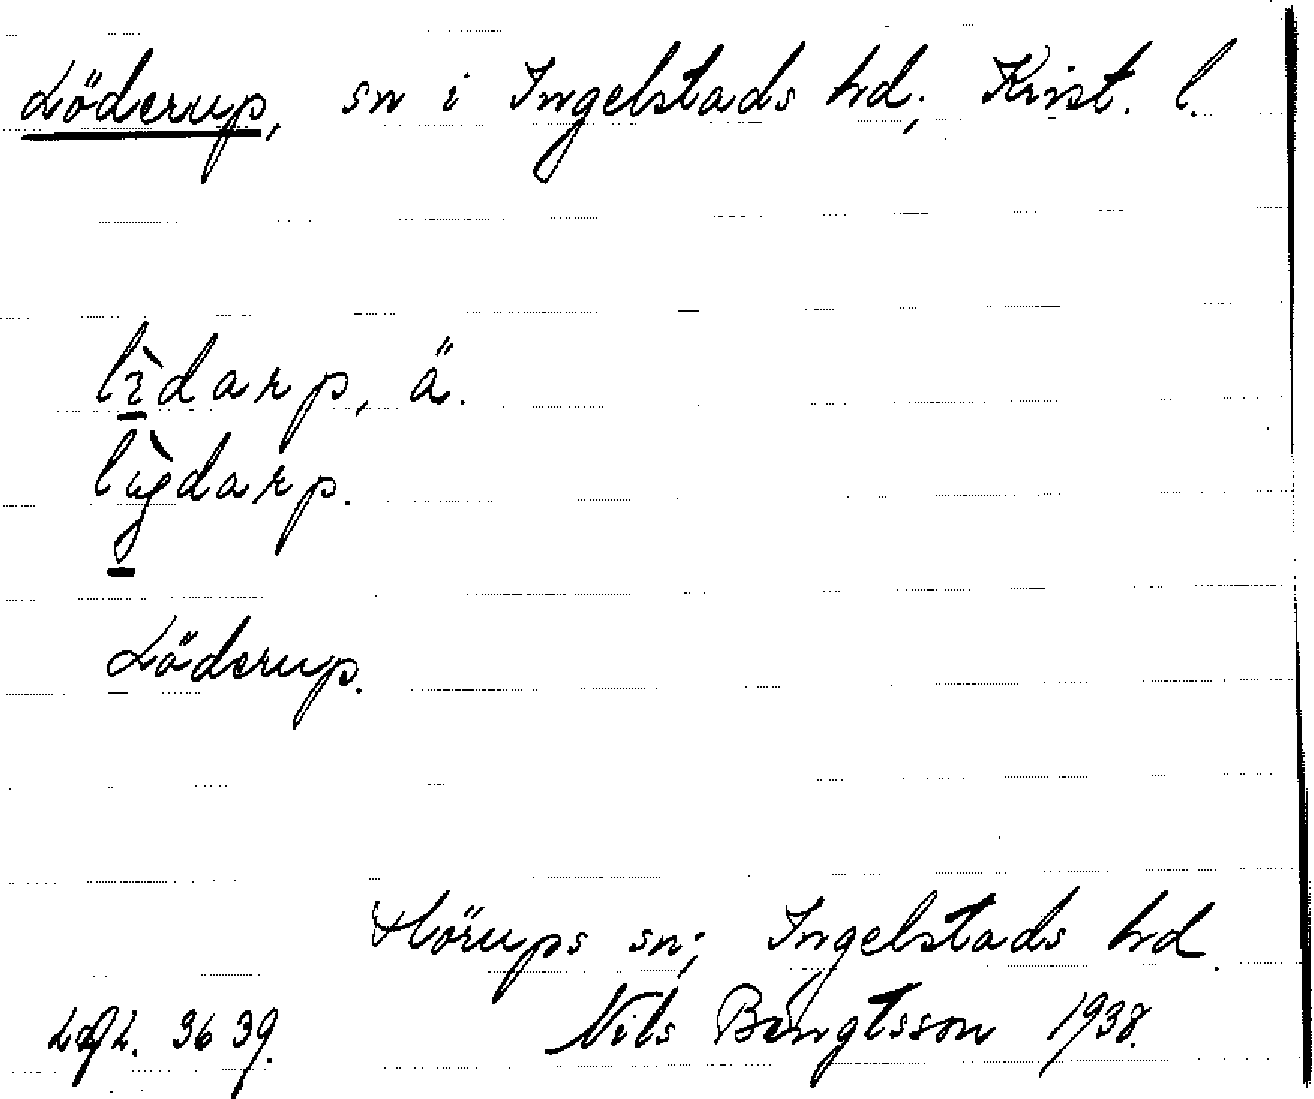 Löderup, sn i Ingelstads hd; Krist. l.
lìdarp, ä.
Löderup.
Hörups sn; Ingelstads hd.
3639. Nils Bengtsson 1938.